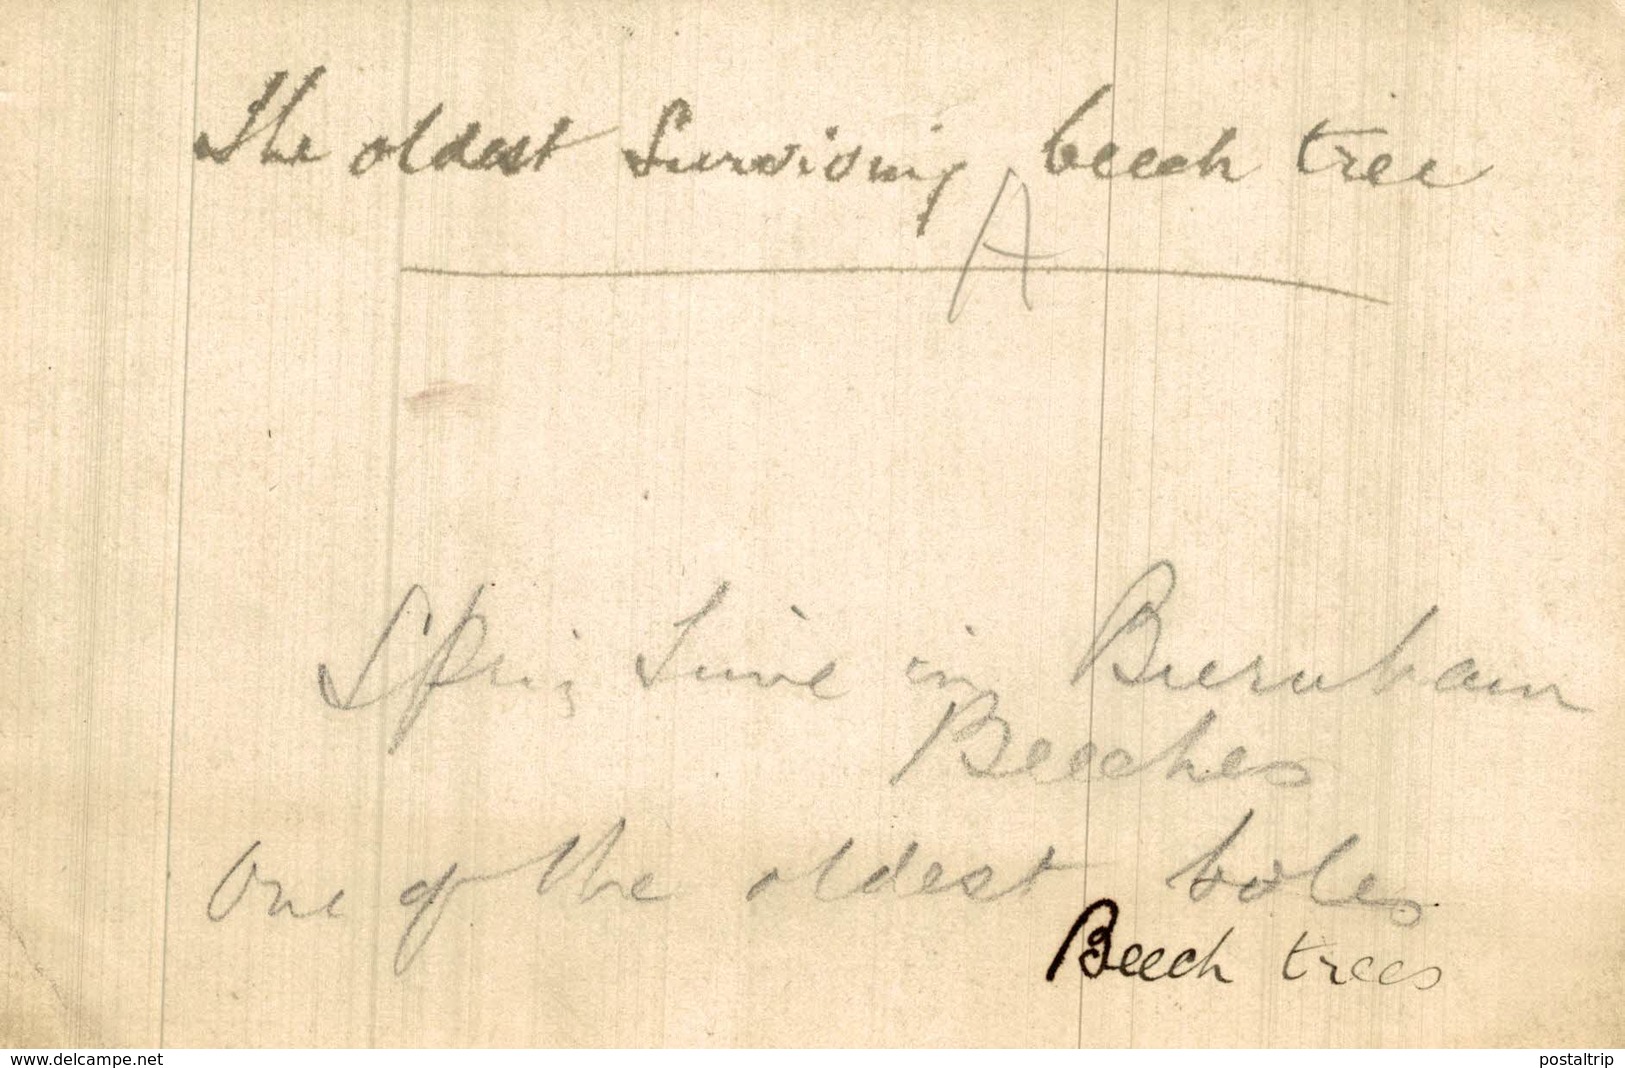 The oldest Surviving beech tree
A
Spring Time in Burnham
Beeches
One of the oldest boles
Beech trees
www.delcampe.net
postaltrip